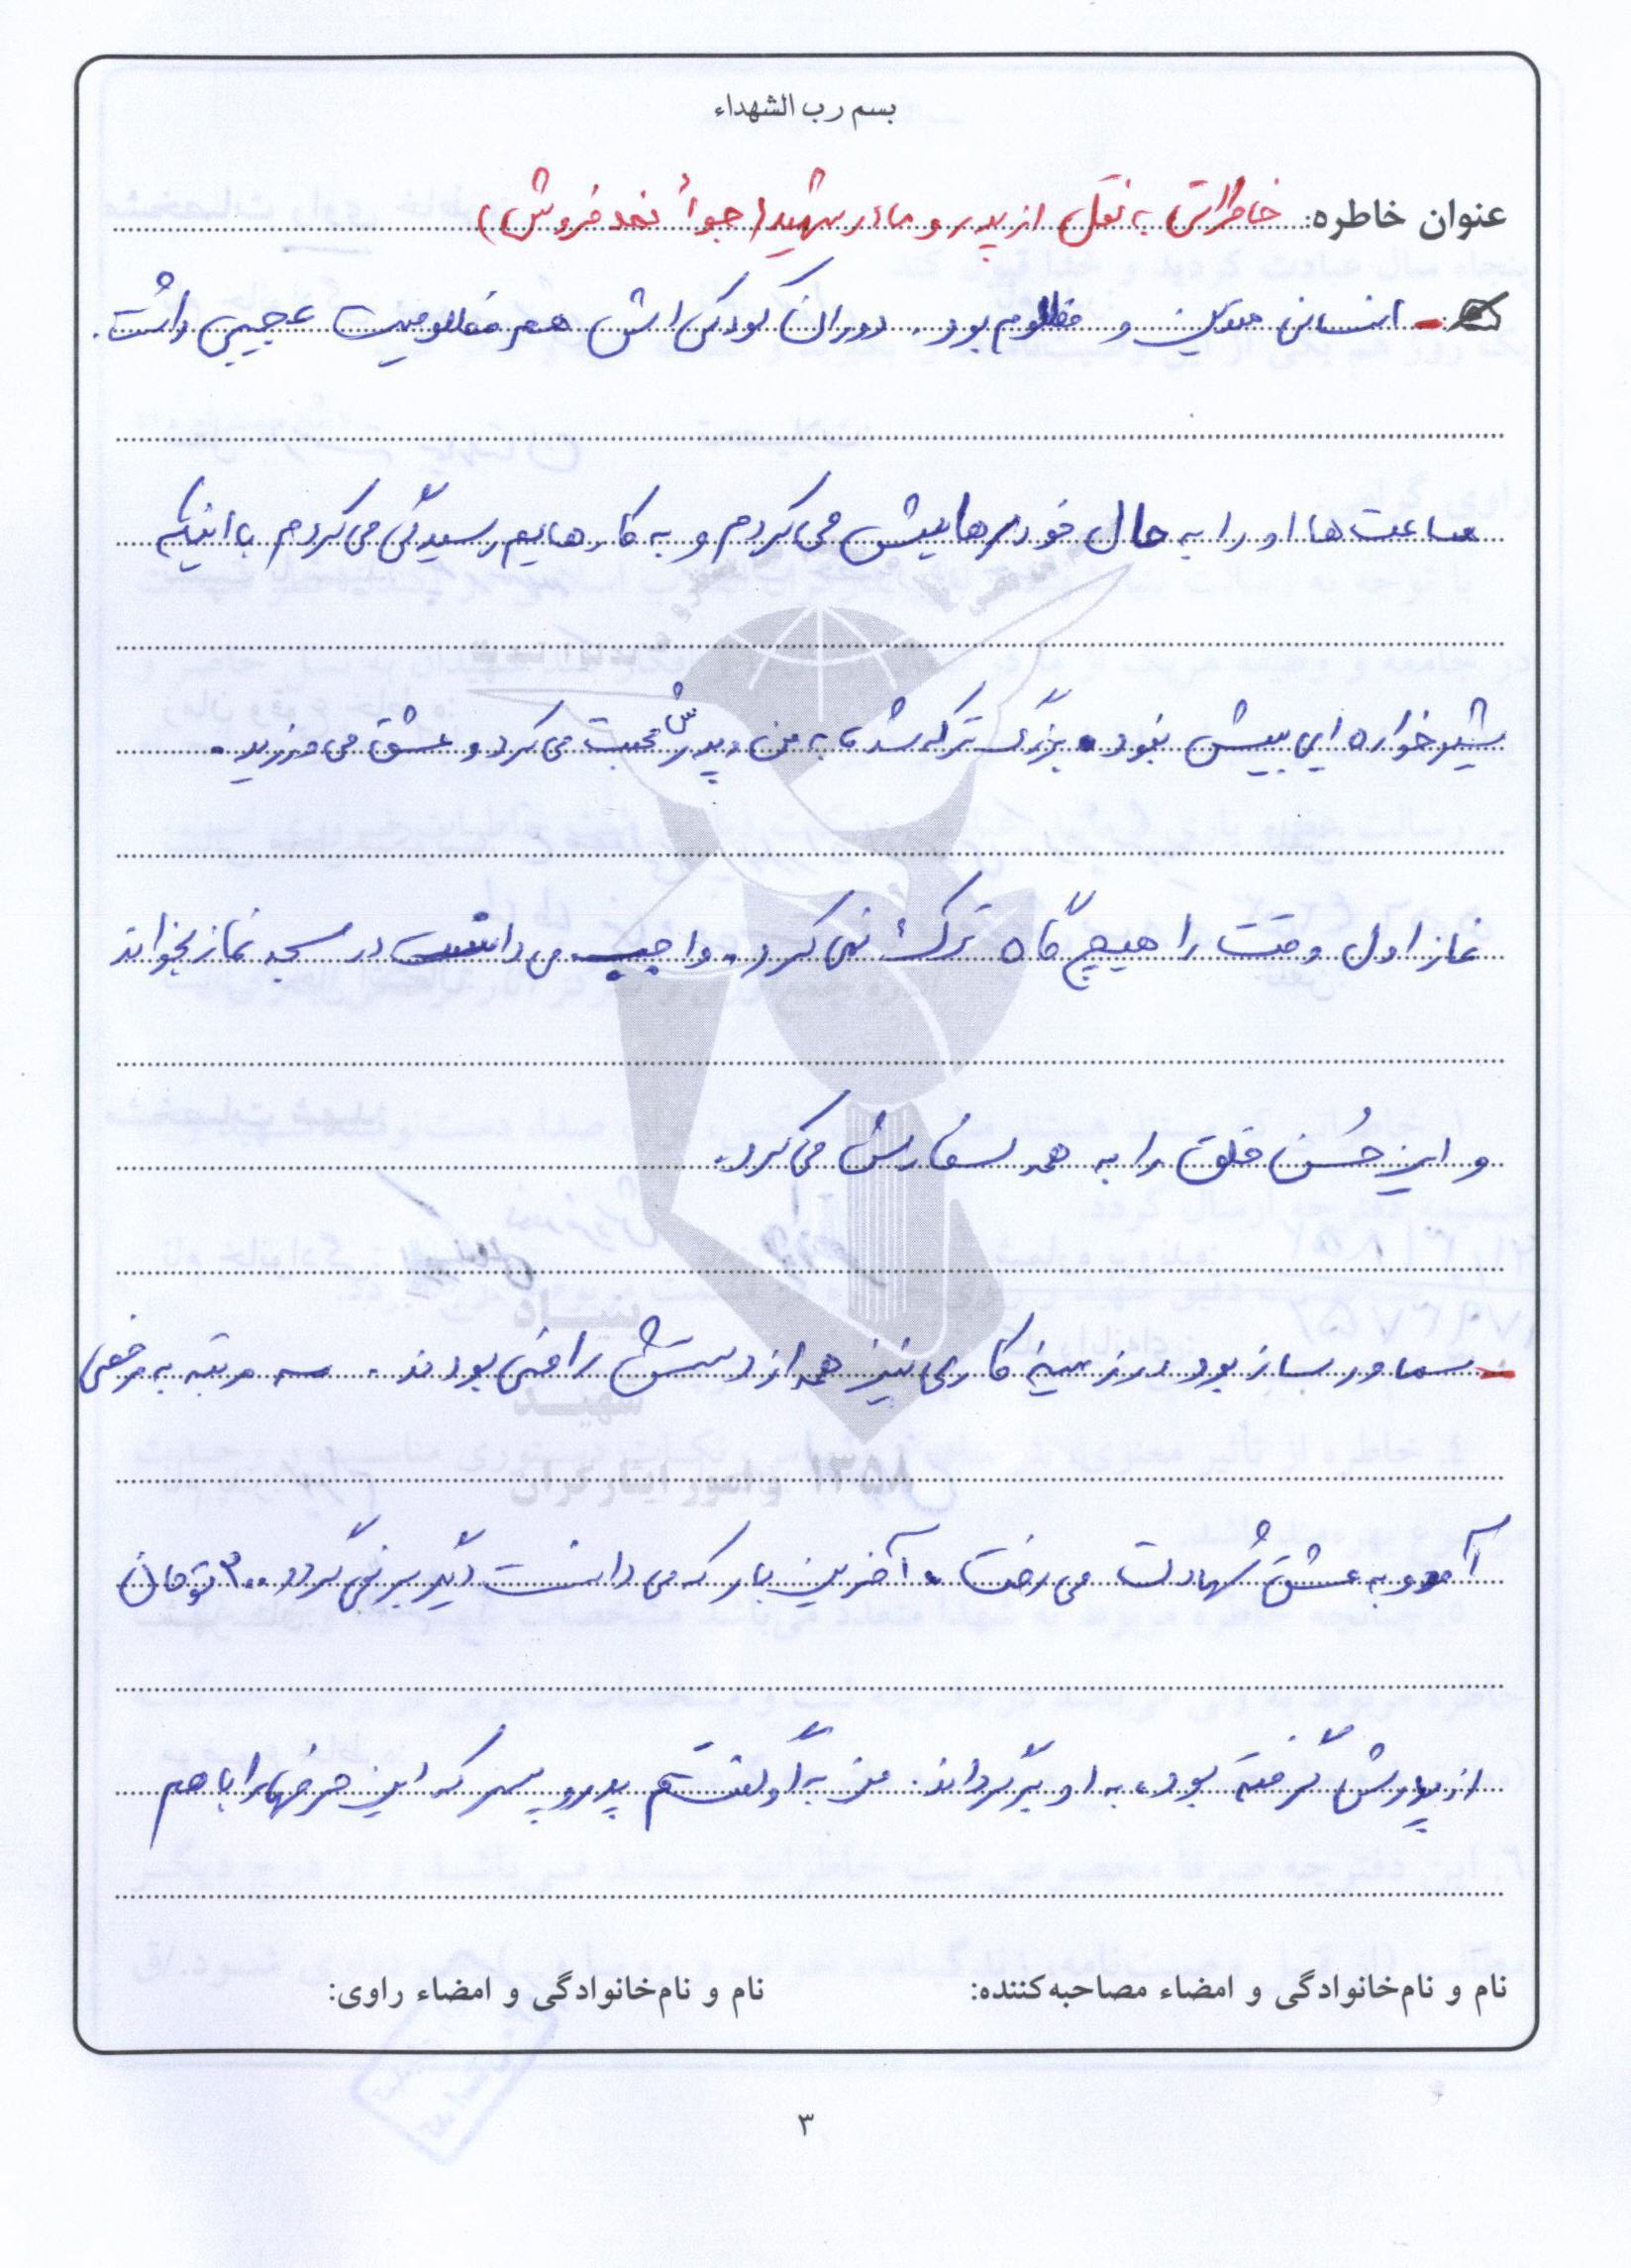 بسم رب الشهداء
عنوان خاطره: خاطراتی به نقل از پدر و مادر شهید (جواد نمدفروش)
- انسانی متین و مظلوم بود. دوران کودکی اش هم مظلومیت عجیبی داشت.
ساعت ها او را به حال خود رهایش می کردم و به کارهایم رسیدگی می کردم با اینکه
شیرخواره ایی بیش نبود. بزرگ تر که شد، به من و پدرش محبت می کرد و عشق می ورزید.
نماز اول وقت را هیچ گاه ترک نمی کرد. واجب می دانست در مسجد نماز بخواند
و این حُسن خلق را به همه سفارش می کرد.
- سماور ساز بود در زمینه کاری نیز همه از دستش راضی بودند. سه مرتبه به مرخصی
آمد و به عشق شهادت می رفت. آخرین بار که می دانست دیگر برنمی گردد ۳۰۰ تومان
از پدرش گرفته بود، به او برگرداند. من به او گفتم پدر و پسر که این حرفها را با هم
نام و نام‌خانوادگی و امضاء مصاحبه‌کننده: نام و نام‌خانوادگی و امضاء راوی:
۳
بنیاد
شهید
و امور ایثارگران ۱۳۵۸